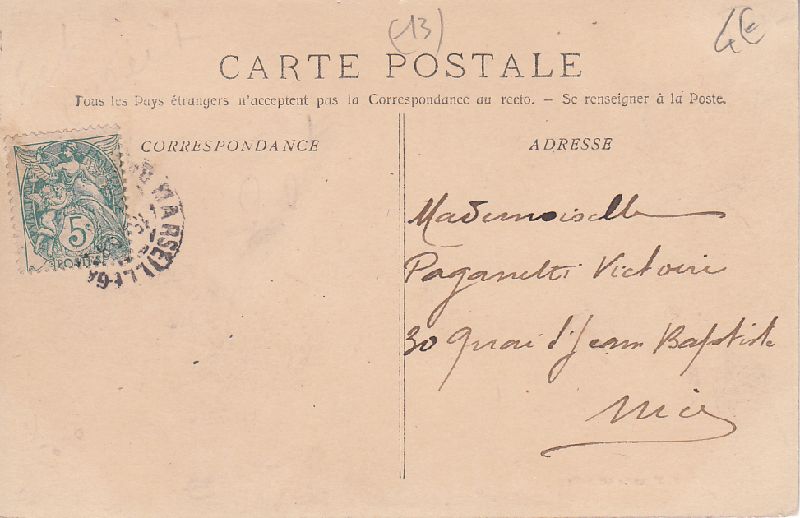 (13)
4€
CARTE POSTALE
Tous les Pays étrangers n'acceptent pas la Correspondance au recto. — Se renseigner à la Poste.
CORRESPONDANCE
ADRESSE
5c
MARSEILLE GARE
Mademoiselle
Paganetti Victoire
30 Quai d'Jean Baptiste
Nice